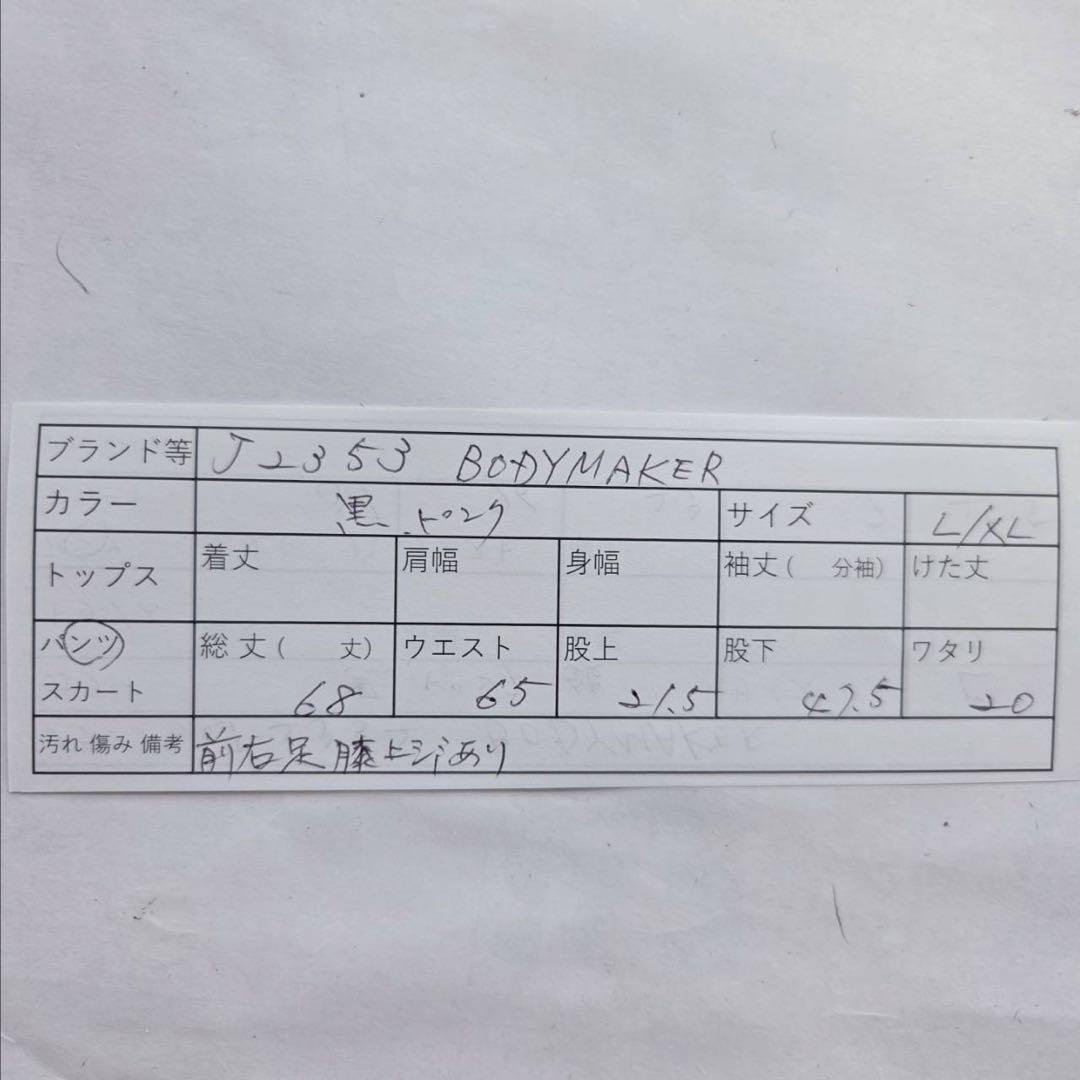 ブランド等 J2353 BODYMAKER
カラー 黒.ピンク サイズ L/XL
トップス 着丈 肩幅 身幅 袖丈( 分袖) けた丈
パンツ 総丈( 丈) ウエスト 股上 股下 ワタリ
スカート 68 65 21.5 47.5 20
汚れ 傷み 備考 前右足膝上シミあり